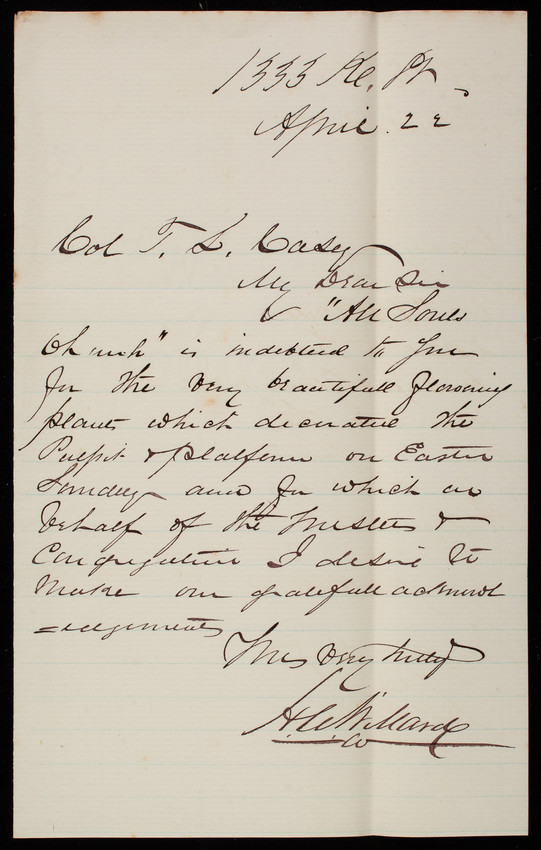 1333 K. St,
April 22
Col T. L. Casey
My Dear Sir
"All Souls
Church" is indebted to you
for the very beautifull flowering
plants which decorated the
Pulpit & platform on Easter
Sunday and for which on
behalf of the Trustees &
Congregation I desire to
make our gratefull acknowl
=edgements
Yours very truly
Willard